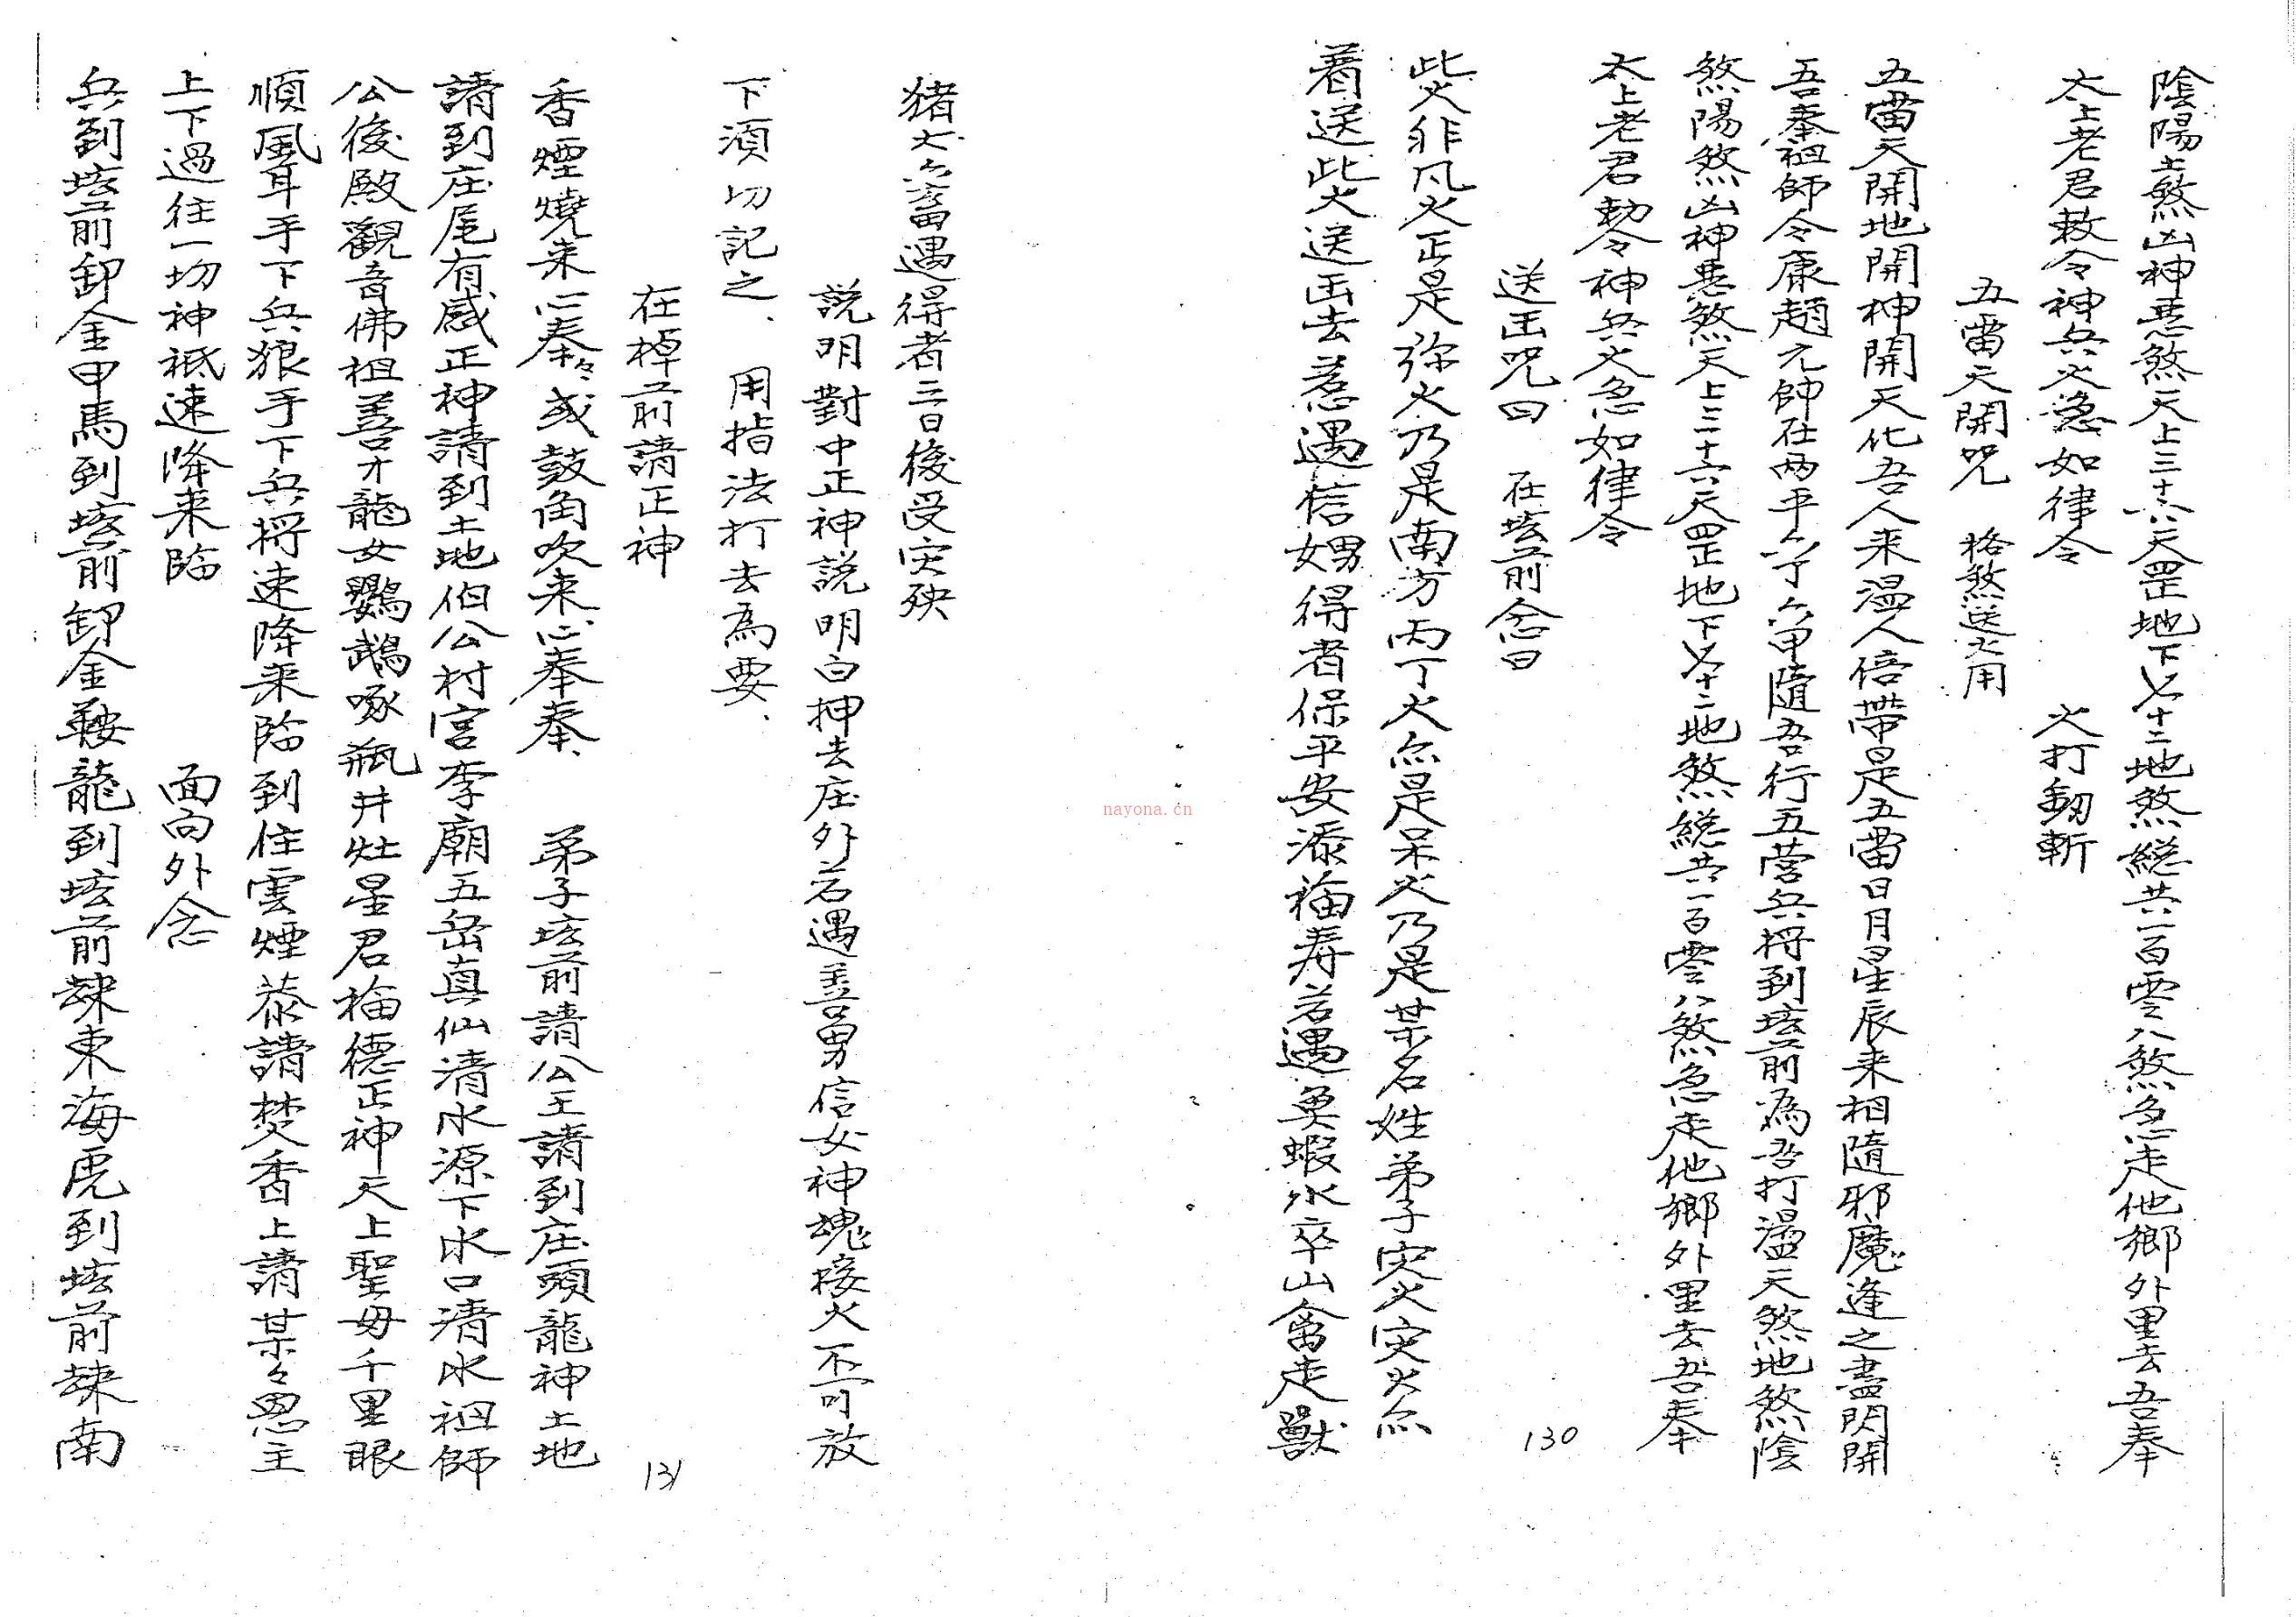 陰陽土煞凶神惡煞天上三十六天罡地下七十二地煞總共一百零八煞急走他鄉外里去吾奉
太上老君敕令神兵火急如律令 火打劍斬
五雷天開咒 格煞送火用
五雷天開地開神開天化吾人来温人倍帶是五雷日月星辰来相隨邪魔逢之盡閃開
吾奉祖師令康趙元帥在兩平六丁六甲隨吾行五营兵将到坛前為吾打温天煞地煞陰
煞陽煞凶神惡煞天上三十六天罡地下七十二地煞總共一百零八煞急走他鄉外里去吾奉
太上老君勅令神兵火急如律令
送出咒曰 在坛前念曰
此火非凡火正是弥火乃是南方丙丁火亦是呆火乃是某名姓弟子灾火灾火亦
着送此火送出去惹遇信男得者保平安添福寿若遇魚蝦水卒山禽走獸
130
猪犬六畜遇得者三日後受灾殃
説明對中正神説明白押去庄外若遇善男信女神魂接火不可放
下須切記之、用指法打去為要、
在棹前請正神
131
香煙燒来心奉々或鼓角吹来心奉奉、 弟子坛前請公王請到庄頭龍神土地
請到庄尾有感正神請到土地伯公村宫李廟五岳真仙清水源下水口清水祖師
公後殿觀音佛祖善才龍女鸚鵡啄瓶井灶星君福德正神天上聖母千里眼
順風耳手下兵狼手下兵将速降来臨到住雲煙恭請焚香上請某々恩主
上下過往一切神祗速降来臨 面向外念
兵到坛前卸金甲馬到坛前卸金鞍龍到坛前隸東海虎到坛前隸南
nayona.cn